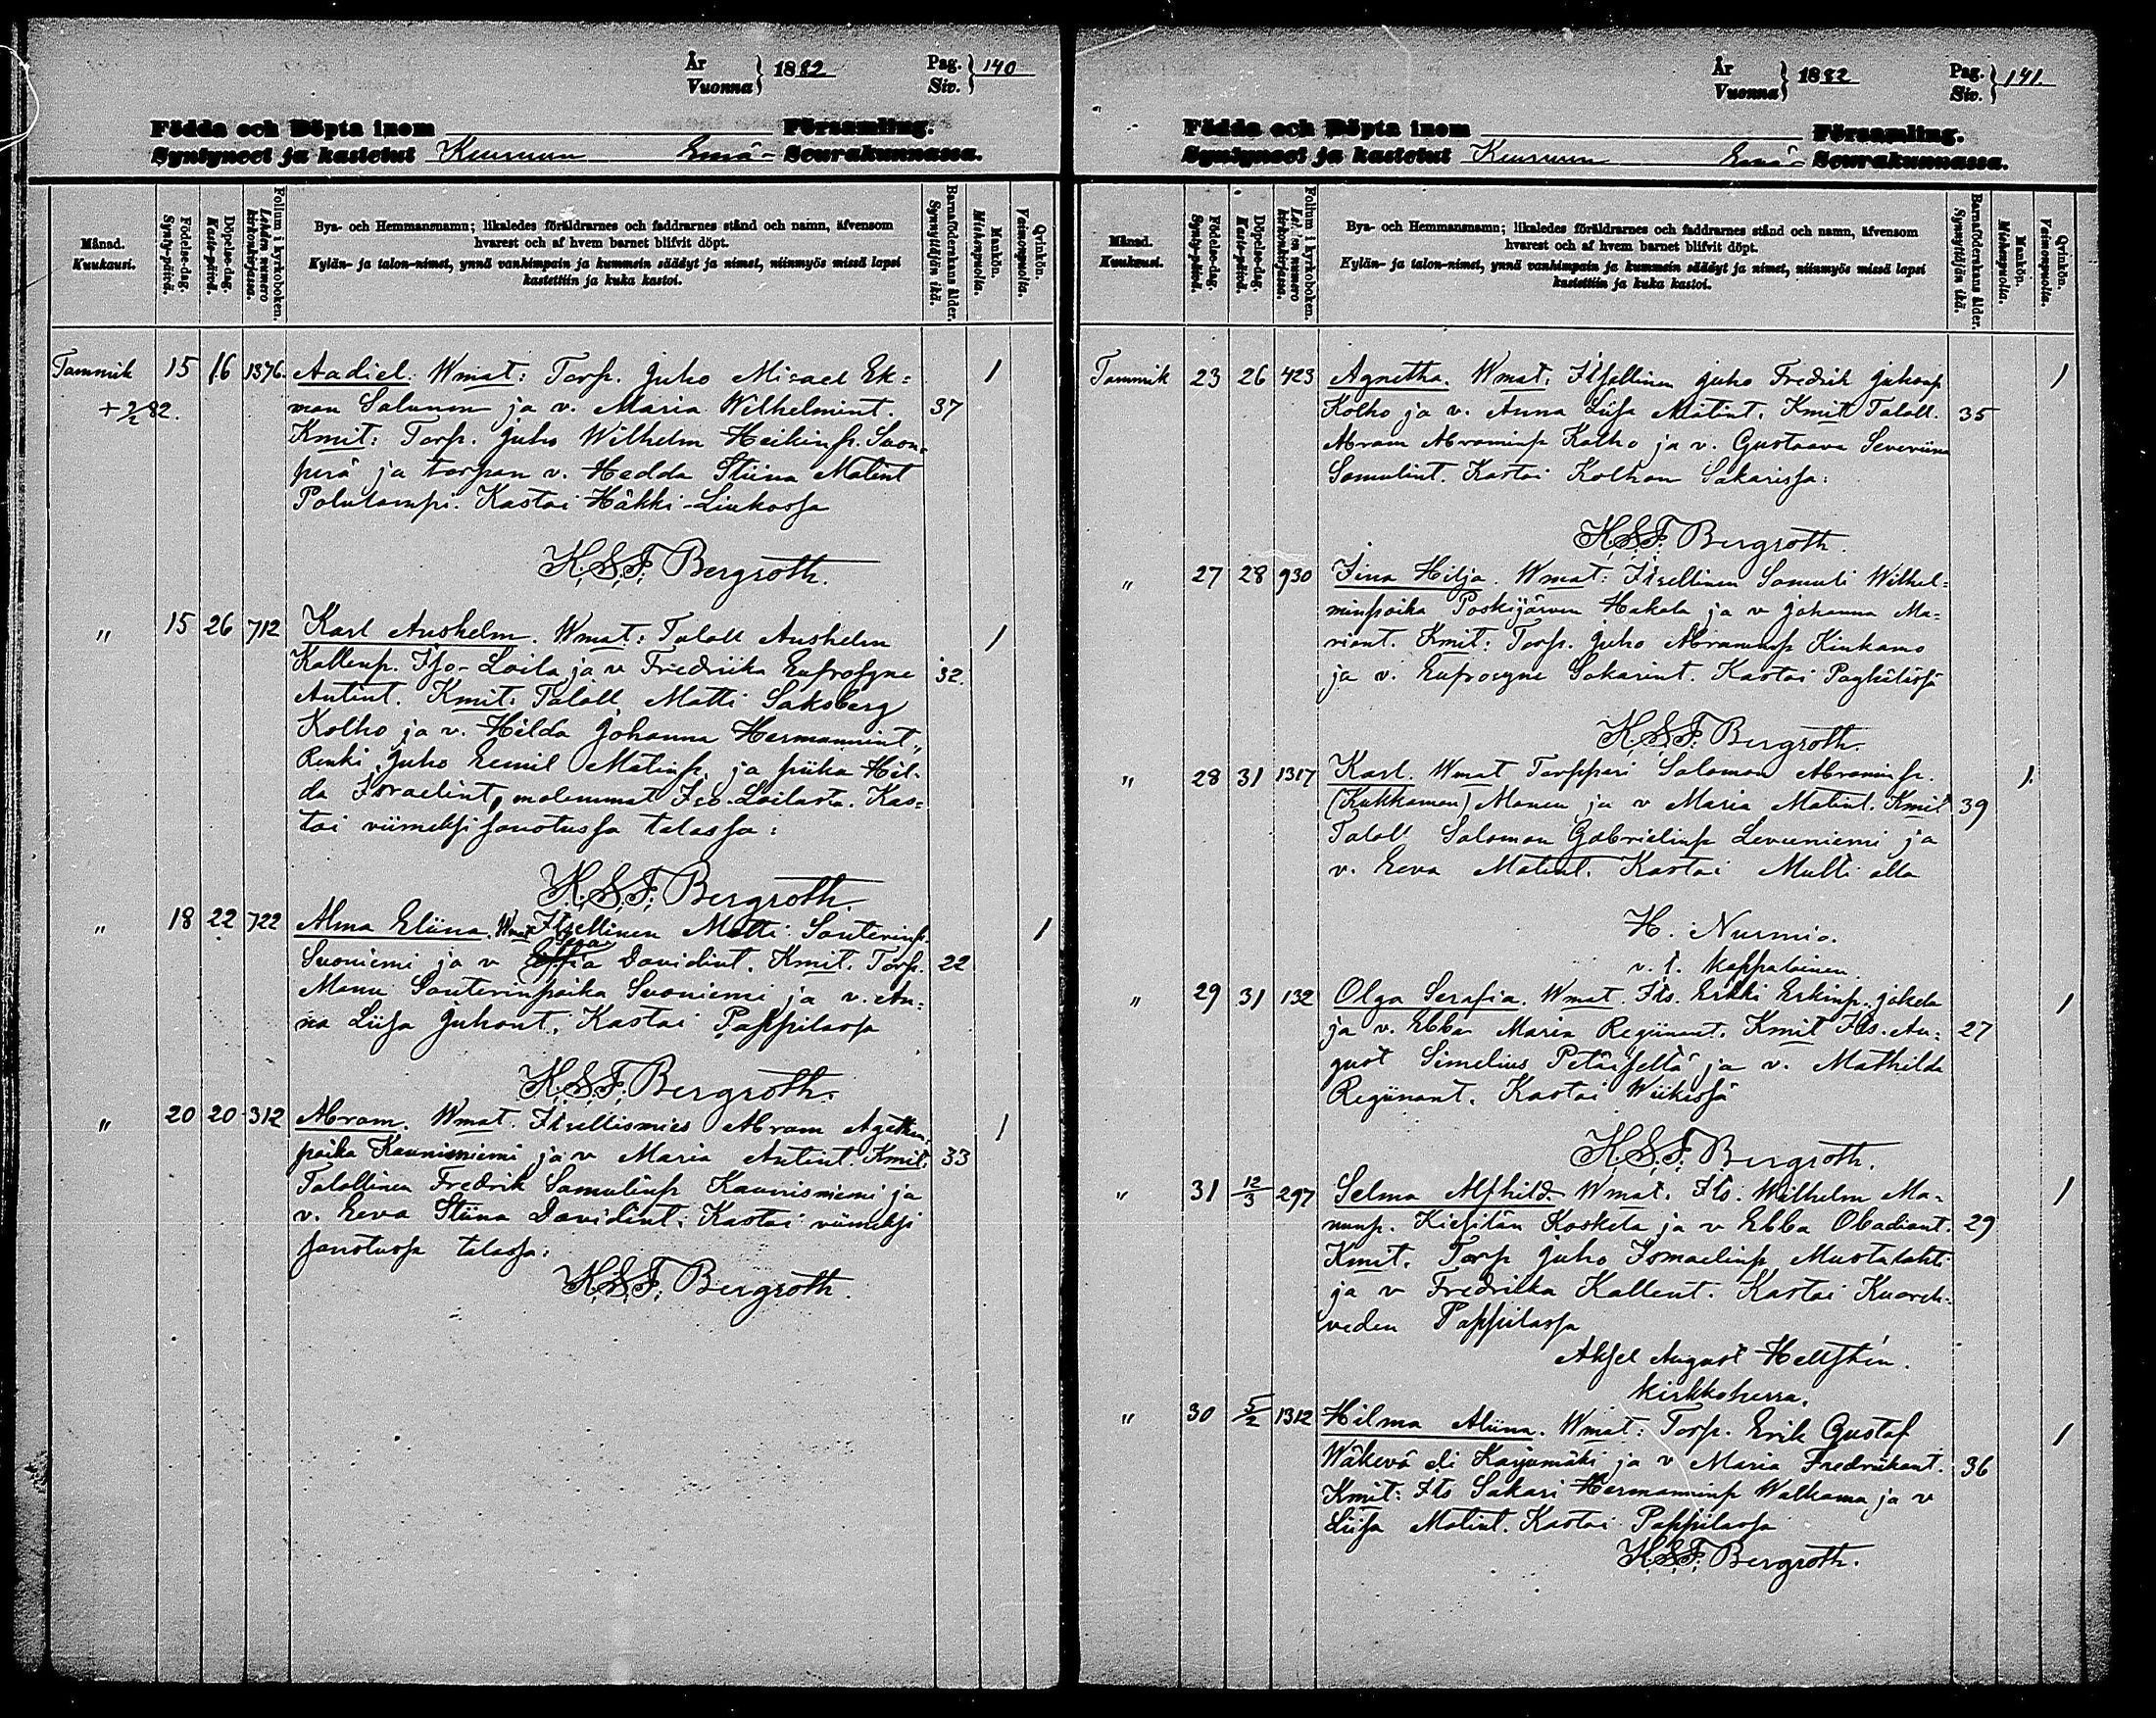 År
Vuonna } 1882
Pag.
Siv. } 140
Födda och Döpta inom Församling.
Syntyneet ja kastetut Keuruun Emä- Seurakunnassa.
Månad.
Kuukausi.
Födelse-dag.
Synty-päivä.
Döpelse-dag.
Kaste-päivä.
Folium i kyrkoboken.
Lehden numero kirkonkirjassa.
Bya- och Hemmansnamn; likaledes föräldrarnes och faddrarnes stånd och namn, äfvensom
hvarest och af hvem barnet blifvit döpt.
Kylän- ja talon-nimet, ynnä vanhimpain ja kummein säädyt ja nimet, niinmyös missä lapsi
kastettiin ja kuka kastoi.
Barnaföderskans ålder.
Synnyttäjän ikä.
Mankön.
Miehenpuolia.
Qvinkön.
Vaimonpuolia.
Tammik 15 16 1376. Aadiel. Wmat: Torp. Juho Misael Ek= 1
+ 2/2 82. man Salunen ja v. Maria Wilhelmint. 37
Kmit: Torp. Juho Wilhelm Heikinp. Suon=
perä ja torpan v. Hedda Stiina Matint
Polulampi. Kastoi Häkki-Liukossa
K.S.F. Bergroth.
" 15 26 712 Karl Anshelm. Wmat: Taloll Anshelm 1
Kallenp. Iso-Loila ja v Fredriika Eufrosyne 32.
Antint. Kmit: Taloll Matti Saksberg
Kolho ja v. Hilda Johanna Hermannint,
Renki Juho Eemil Matinp. ja piika Hil-
da Israelint, molemmat Iso-Loilasta. Kas=
toi viimeksi sanotussa talossa:
K.S.F. Bergroth.
" 18 22 722 Alma Eliina. Wmat Itsellinen Matti Santerinp. 1
Suoniemi ja v Davidint. Kmit. Torp. 22
Manu Santerinpoika Suoniemi ja v. An=
na Liisa Juhont. Kastoi Pappilassa
K.S.F. Bergroth.
" 20 20 312 Abram. Wmat. Itsellismies Abram Agathon= 1
poika Kaunisniemi ja v Maria Antint. Kmit. 33
Talollinen Fredrik Samulinp Kaunisniemi ja
v. Eeva Stiina Davidint. Kastoi viimeksi
sanotussa talossa:
K.S.F. Bergroth.
År
Vuonna } 1882
Pag.
Siv. } 141.
Födda och Döpta inom Församling.
Syntyneet ja kastetut Keuruun Emä- Seurakunnassa.
Månad.
Kuukausi.
Födelse-dag.
Synty-päivä.
Döpelse-dag.
Kaste-päivä.
Folium i kyrkoboken.
Lehden numero kirkonkirjassa.
Bya- och Hemmansnamn; likaledes föräldrarnes och faddrarnes stånd och namn, äfvensom
hvarest och af hvem barnet blifvit döpt.
Kylän- ja talon-nimet, ynnä vanhimpain ja kummein säädyt ja nimet, niinmyös missä lapsi
kastettiin ja kuka kastoi.
Barnaföderskans ålder.
Synnyttäjän ikä.
Mankön.
Miehenpuolia.
Qvinkön.
Vaimonpuolia.
Tammik 23 26 423 Agnetha. Wmat: Itsellinen Juho Fredrik Juhonp 1
Kolho ja v. Anna Liisa Matint. Kmit Taloll. 35
Abram Abraminp Kolho ja v. Gustaava Severiina
Samulint. Kastoi Kolhon Sakarissa:
K.S.F. Bergroth.
" 27 28 930 Iina Hilja. Wmat: Itsellinen Samuli Wilhel=
minpoika Poskijärven Hakala ja v Johanna Ma=
riant. Kmit: Torp. Juho Abraminp Kinkamo
ja v. Eufrosyne Sakarint. Kastoi
K.S.F. Bergroth.
" 28 31 1317 Karl. Wmat Torppari Salomon Abraminp. 1.
(Kukkaman) Manen ja v Maria Matint. Kmit 39
Taloll Salomon Gabrielinp Leveeniemi ja
v. Eeva Matint. Kastoi Multi alla
H. Nurmio.
v. t. kappalainen.
" 29 31 132 Olga Serafia. Wmat. Its. Erkki Erkinp. Jokela 1
ja v. Ebba Maria Regiinant. Kmit Its. Au= 27
gust Simelius Petäiseltä ja v. Mathilda
Regiinant. Kastoi Wiikissä
K.S.F. Bergroth.
" 31 12/3 297 Selma Alfhild. Wmat. Its. Wilhelm Ma= 1
nunp. Kiesilän Koskela ja v Ebba Obadiant. 29
Kmit. Torp Juho Ismaelinp Mustalahti
ja v Fredrika Kallent. Kastoi Kuoreh=
veden Pappilassa
Aksel August Hellstén.
kirkkoherra.
" 30 5/2 1312 Hilma Aliina. Wmat: Torp. Erik Gustaf 1
Wäkevä eli Karjumäki ja v Maria Fredrikant. 36
Kmit: Its Sakari Hermanninp Walkama ja v
Liisa Matint. Kastoi Pappilassa
K.S.F. Bergroth.